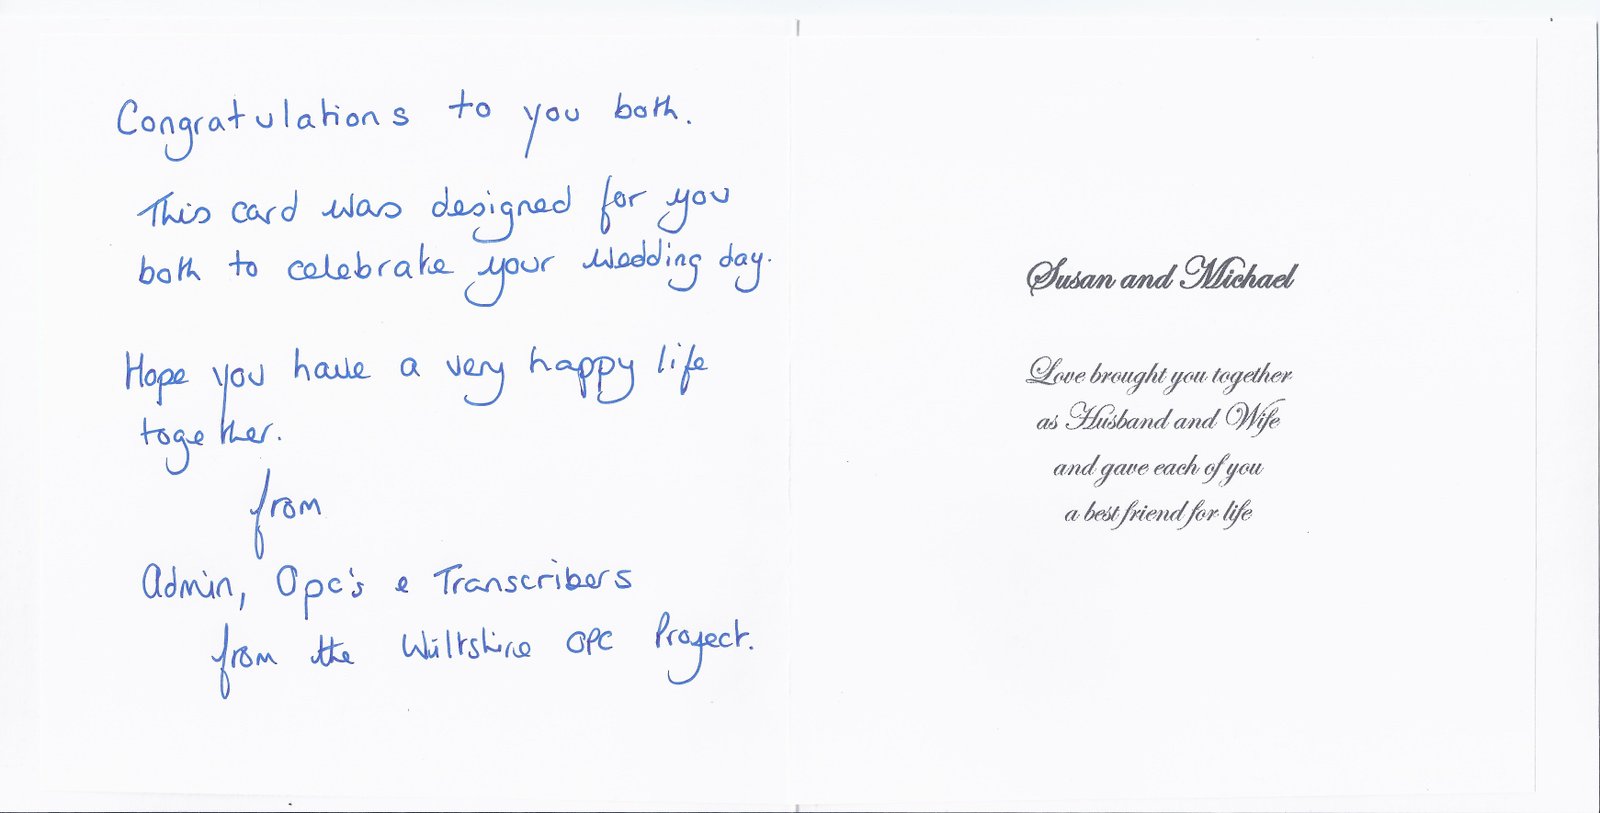 Congratulations to you both.
This card was designed for you
both to celebrate your wedding day.
Hope you have a very happy life
together.
from
Admin, Opc's & Transcribers
from the Wiltshire OPC Project.
Susan and Michael
Love brought you together
as Husband and Wife
and gave each of you
a best friend for life